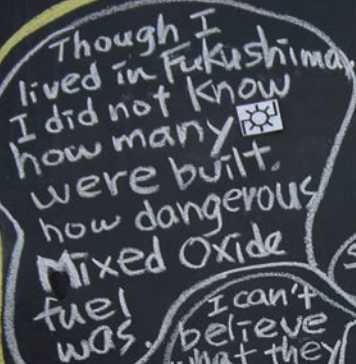 Though I
lived in Fukushima,
I did not know
how many
were built.
how dangerous
Mixed Oxide
fuel
was.
I can't
believe
what they